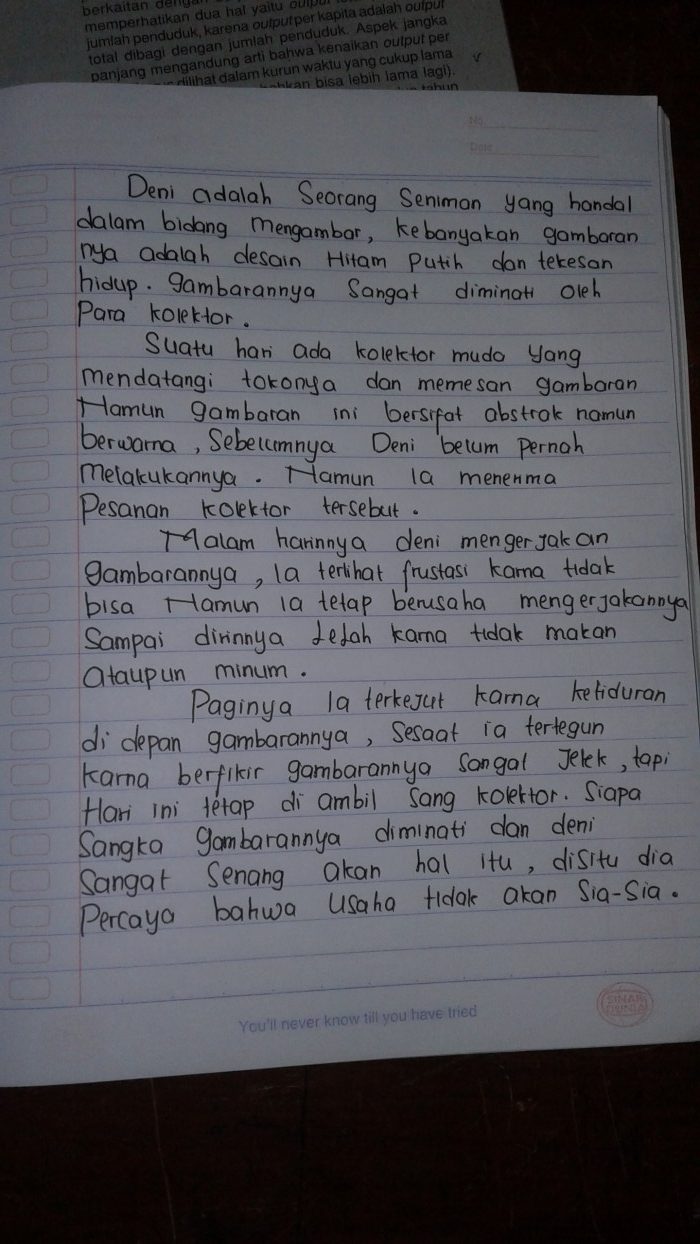 berkaitan dengan
memperhatikan dua hal yaitu output
jumlah penduduk, karena output per kapita adalah output
total dibagi dengan jumlah penduduk. Aspek jangka
panjang mengandung arti bahwa kenaikan output per
dilihat dalam kurun waktu yang cukup lama
bisa lebih lama lagi).
tahun
No
Date
Deni adalah Seorang Seniman yang handal
dalam bidang mengambar, kebanyakan gambaran
nya adalah desain Hitam Putih dan tekesan
hidup. gambarannya Sangat diminati oleh
Para kolektor.
Suatu hari ada kolektor muda yang
mendatangi tokonya dan memesan gambaran
Namun gambaran ini bersifat abstrak namun
berwarna, Sebelumnya Deni belum pernah
melakukannya. Namun Ia menerima
Pesanan kolektor tersebut.
Malam harinnya deni mengerjakan
gambarannya, Ia terlihat frustasi karna tidak
bisa Namun ia tetap berusaha mengerjakannya
Sampai dirinnya Lelah karna tidak makan
Ataupun minum.
Paginya Ia terkejut karna ketiduran
di depan gambarannya, Sesaat ia tertegun
karna berfikir gambarannya Sangat Jelek, tapi
Hari ini tetap di ambil Sang kolektor. Siapa
Sangka gambarannya diminati dan deni
Sangat Senang akan hal itu, disitu dia
Percaya bahwa Usaha tidak akan Sia-Sia.
You'll never know till you have tried
SINAR
DUNIA